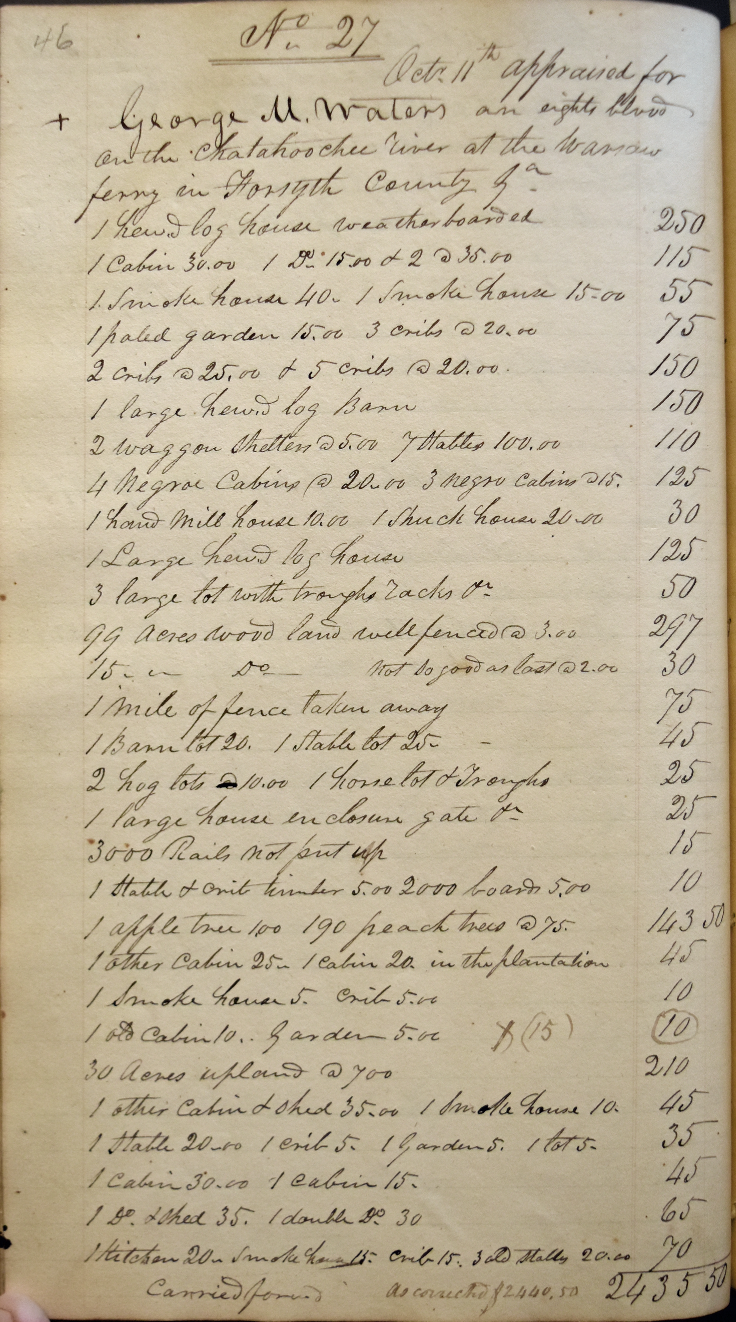 46
No 27
Octr 11th appraised for
+ George M. Waters an eights blood
on the Chatahoochee river at the Warsaw
ferry in Forsyth County Ga
1 hewd log house weatherboarded 250
1 Cabin 30.00 1 Do 15.00 & 2 @ 35.00 115
1 Smoke house 40- 1 Smoke house 15-00 55
1 paled garden 15.00 3 cribs @ 20.00 75
2 cribs @ 25.00 & 5 cribs @ 20.00. 150
1 large hewd log Barn 150
2 waggon Shelters @ 5.00 7 Stables 100.00 110
4 Negroe Cabins @ 20.00 3 negro Cabins @ 15. 125
1 hand Mill house 10.00 1 Shuck house 20.00 30
1 Large hewd log house 125
3 large lot with troughs racks &c 50
99 Acres wood land well fenced @ 3.00 297
15 " " Do — Not So good as last @ 2.00 30
1 Mile of fence taken away 75
1 Barn lot 20. 1 Stable lot 25- - 45
2 hog lots @ 10.00 1 horse lot & Troughs 25
1 large house enclosure gate &c 25
3000 Rails not put up 15
1 Stable & crib timber 5.00 2000 boards 5.00 10
1 apple tree 100 190 peach trees @ 75- 143 50
1 other Cabin 25- 1 Cabin 20- in the plantation 45
1 Smoke house 5. Crib 5.00 10
1 old Cabin 10.. Garden 5.00 (15) (10)
30 Acres upland @ 700 210
1 other Cabin & Shed 35.00 1 Smoke house 10. 45
1 Stable 20.00 1 crib 5- 1 Garden 5. 1 lot 5- 35
1 Cabin 30.00 1 Cabin 15- 45
1 Do. & Shed 35. 1 double Do 30 65
1 Kitchen 20- Smoke house 15- Crib 15. 3 old Stalls 20.00 70
Carried forwd As corrected $2440.50 2435 50